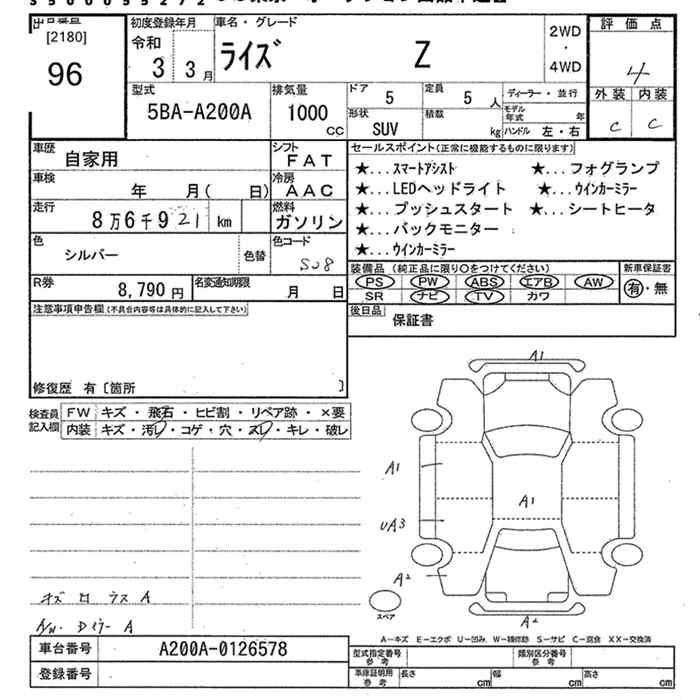 [2180]
96
初度登録年月
令和
3 3月
車名・グレード
ライズ Z
2WD
・
4WD
評価点
4
外装 内装
C C
型式
5BA-A200A
排気量
1000
CC
ドア
5
定員
5 人
形状
SUV
積載
kg
ディーラー・並行
モデル年式 年
ハンドル 左・右
車歴
自家用
シフト
FAT
車検
年 月( 日)
冷房
AAC
走行
8万6千921 km
燃料
ガソリン
色
シルバー
色替
色コード
S28
R券
8,790 円
名変通知期限
月 日
セールスポイント(正常に機能するものに限ります)
★...スマートアシスト ★...フォグランプ
★...LEDヘッドライト ★...ウインカーミラー
★...プッシュスタート ★...シートヒータ
★...バックモニター
★...ウインカーミラー
装備品 (純正品に限り○をつけてください)
新車保証書
PS PW ABS エアB AW
SR ナビ TV カワ
有・無
後日品
保証書
注意事項申告欄(不具合内容等は具体的に記入して下さい)
修復歴 有〔箇所 〕
検査員
記入欄
FW キズ・飛石・ヒビ割・リペア跡・×要
内装 キズ・汚レ・コゲ・穴・スレ・キレ・破レ
A1
A1
A1
UA3
A2
A2
スペア
A-キズ E-エクボ U-凹み W-補修跡 S-サビ C-腐食 XX-交換済
車台番号
A200A-0126578
登録番号
型式指定番号
参考
類別区分番号
参考
車庫証明用
参考
長さ cm
幅 cm
高さ cm